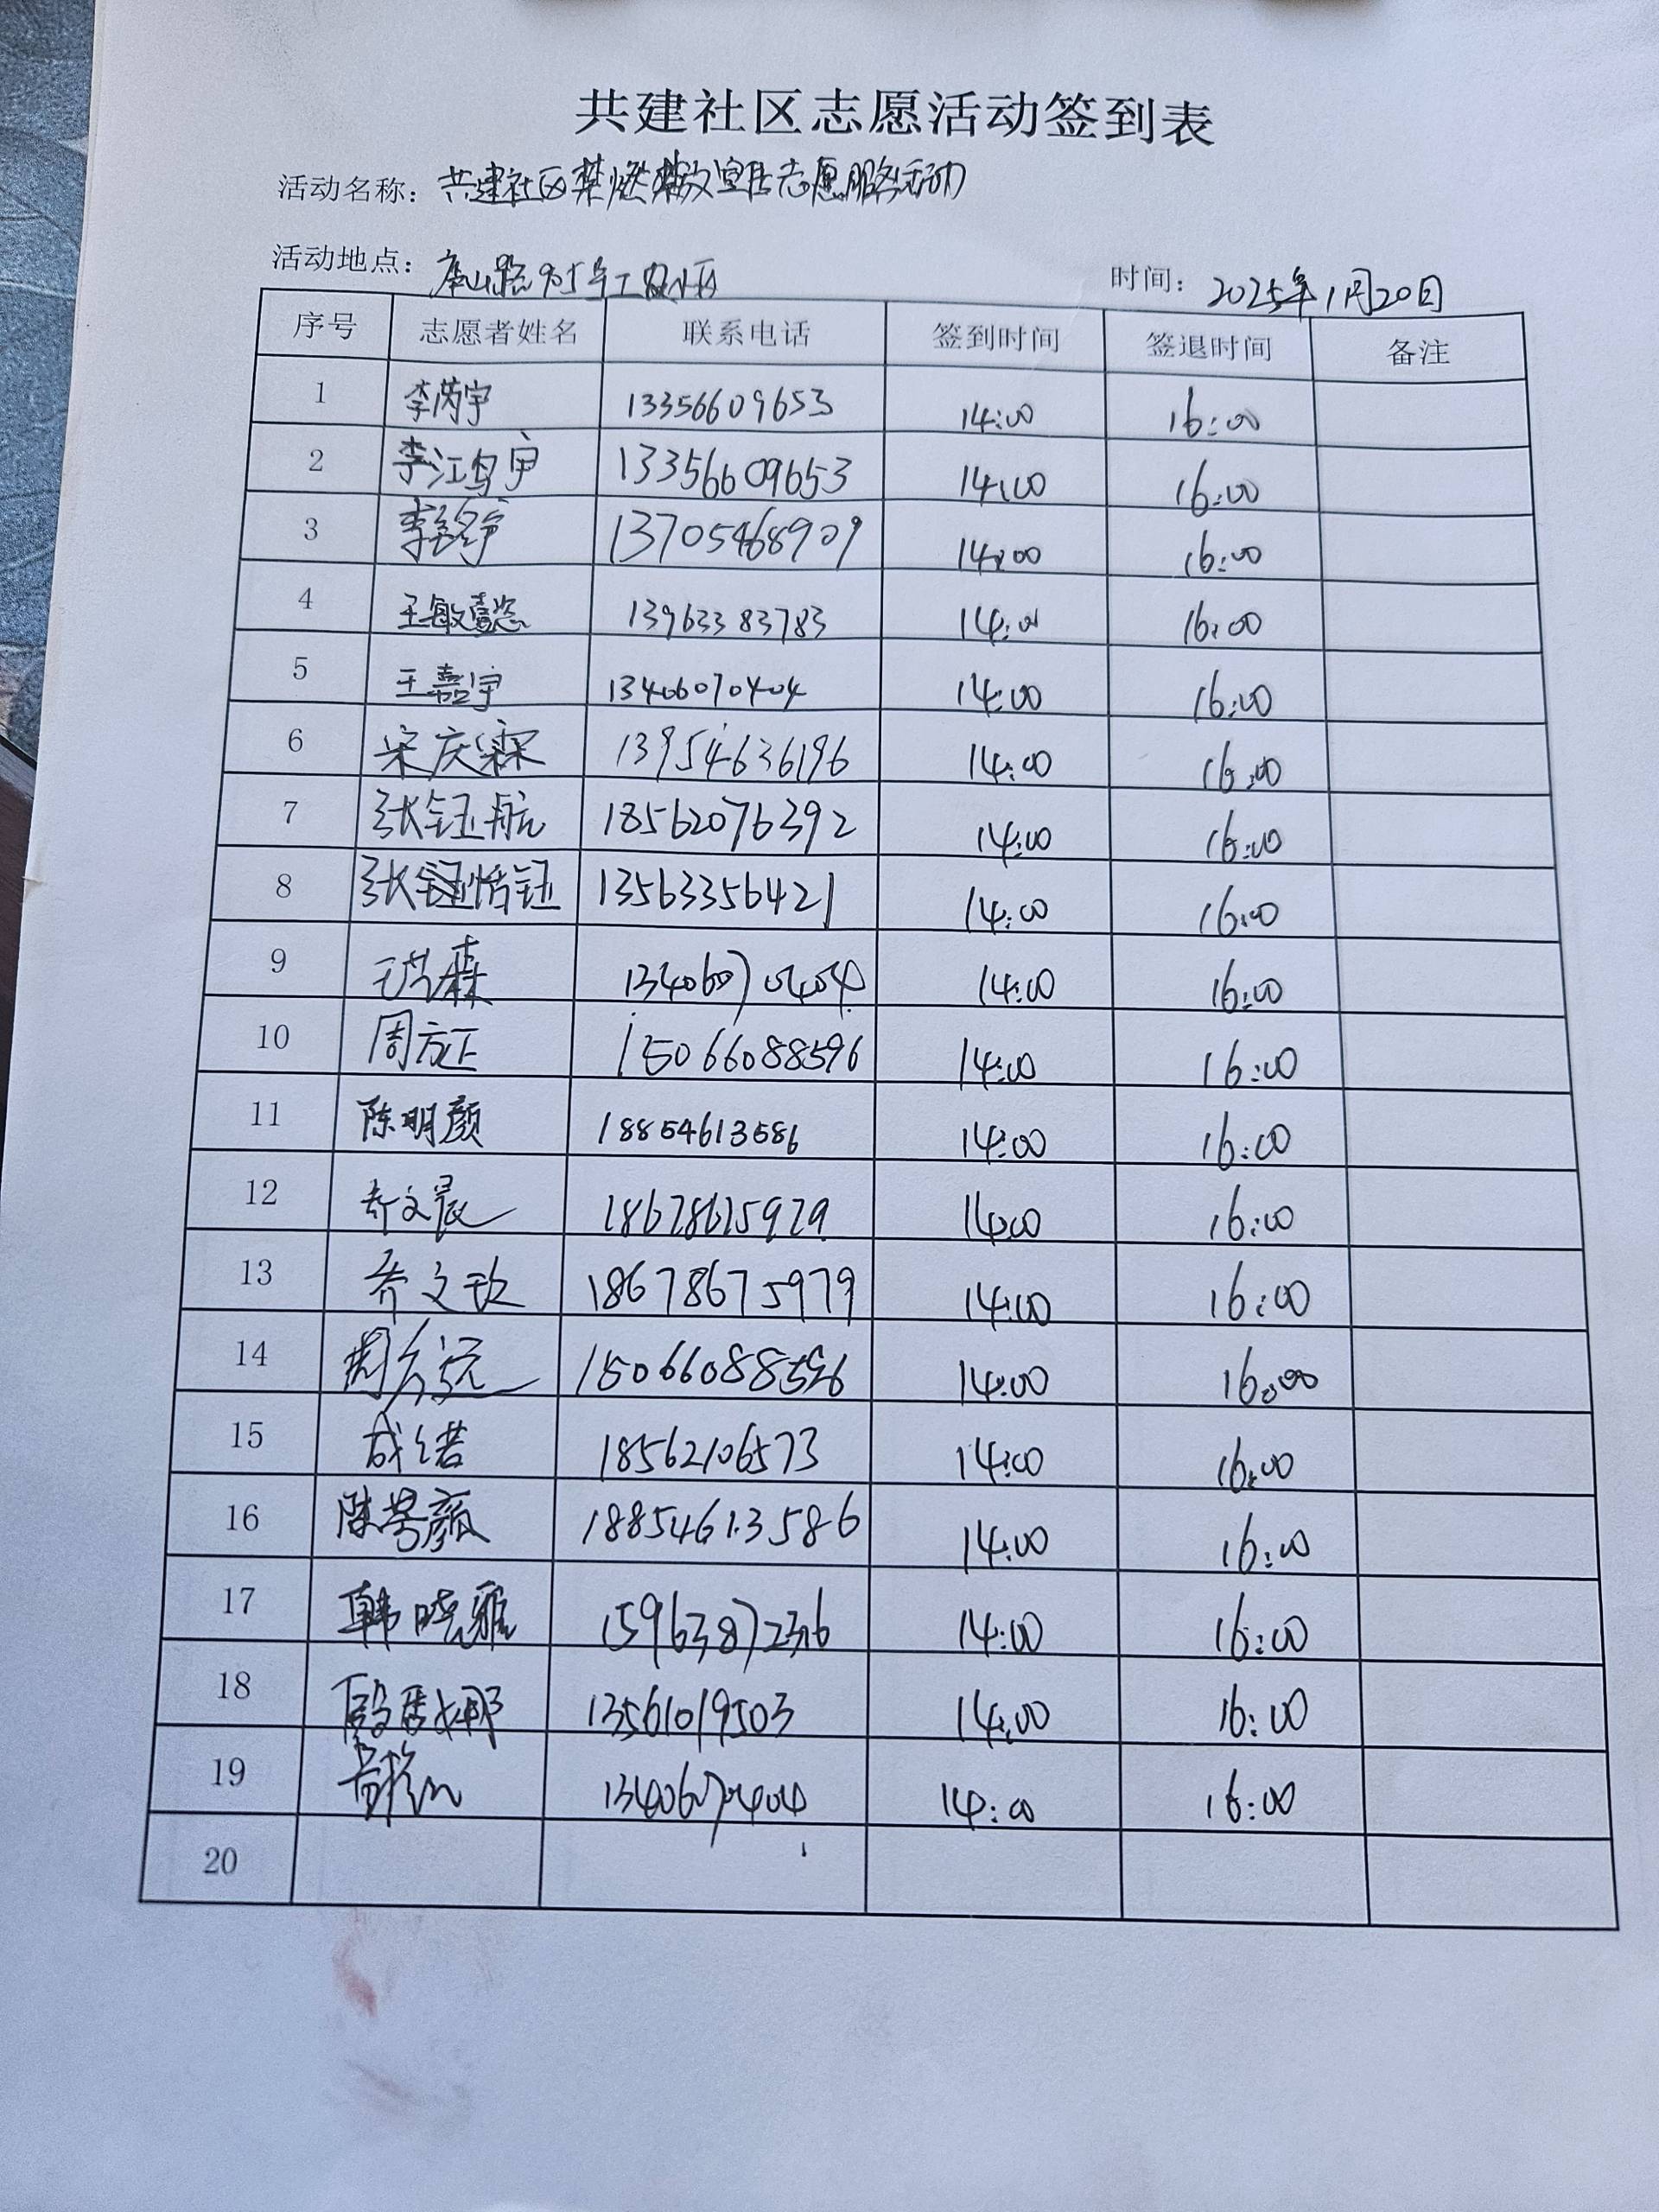 共建社区志愿活动签到表
活动名称：共建社区禁燃禁放宣传志愿服务活动
活动地点：小区 时间：2025年1月20日
序号 志愿者姓名 联系电话 签到时间 签退时间 备注
1 李芮宇 13356609653 14:00 16:00
2 李江 13356609653 14:00 16:00
3 李 13705468909 14:00 16:00
4 王敏 13963383783 14:00 16:00
5 王嘉宇 13406070404 14:00 16:00
6 宋庆霖 13954636196 14:00 16:00
7 张钰航 18562076392 14:00 16:00
8 张恬钰 13563356421 14:00 16:00
9 王艺霖 13406070404 14:00 16:00
10 周方正 15066088596 14:00 16:00
11 陈明颜 18854613586 14:00 16:00
12 乔文晨 14:00 16:00
13 乔文玫 18678675979 14:00 16:00
14 周方远 14:00 16:00
15 成诺 18562106573 14:00 16:00
16 陈颜 18854613586 14:00 16:00
17 韩晓雅 15963872316 14:00 16:00
18 娜 13561019503 14:00 16:00
19 13406070404 14:00 16:00
20